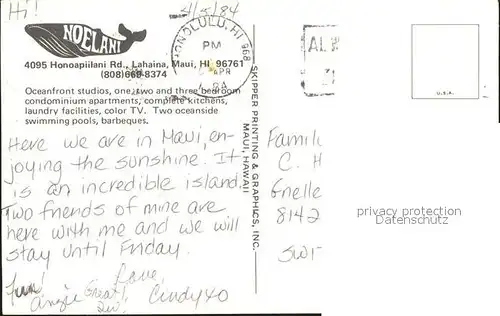 Hi!
4/5/84
NOELANI
4095 Honoapiilani Rd., Lahaina, Maui, HI 96761
(808) 669-8374
Oceanfront studios, one, two and three bedroom
condominium apartments, complete kitchens,
laundry facilities, color TV. Two oceanside
swimming pools, barbeques.
Here we are in Maui, en-
joying the sunshine. It
is an incredible island.
Two friends of mine are
here with me and we will
stay until Friday.
Love,
Fun!
Angie
Great!
Cindy xo
SKIPPER PRINTING & GRAPHICS, INC.
MAUI, HAWAII
HONOLULU, HI 968
PM
APR
U.S.A.
Famil
C. H
Gnelle
8142
SWI
privacy protection
Datenschutz